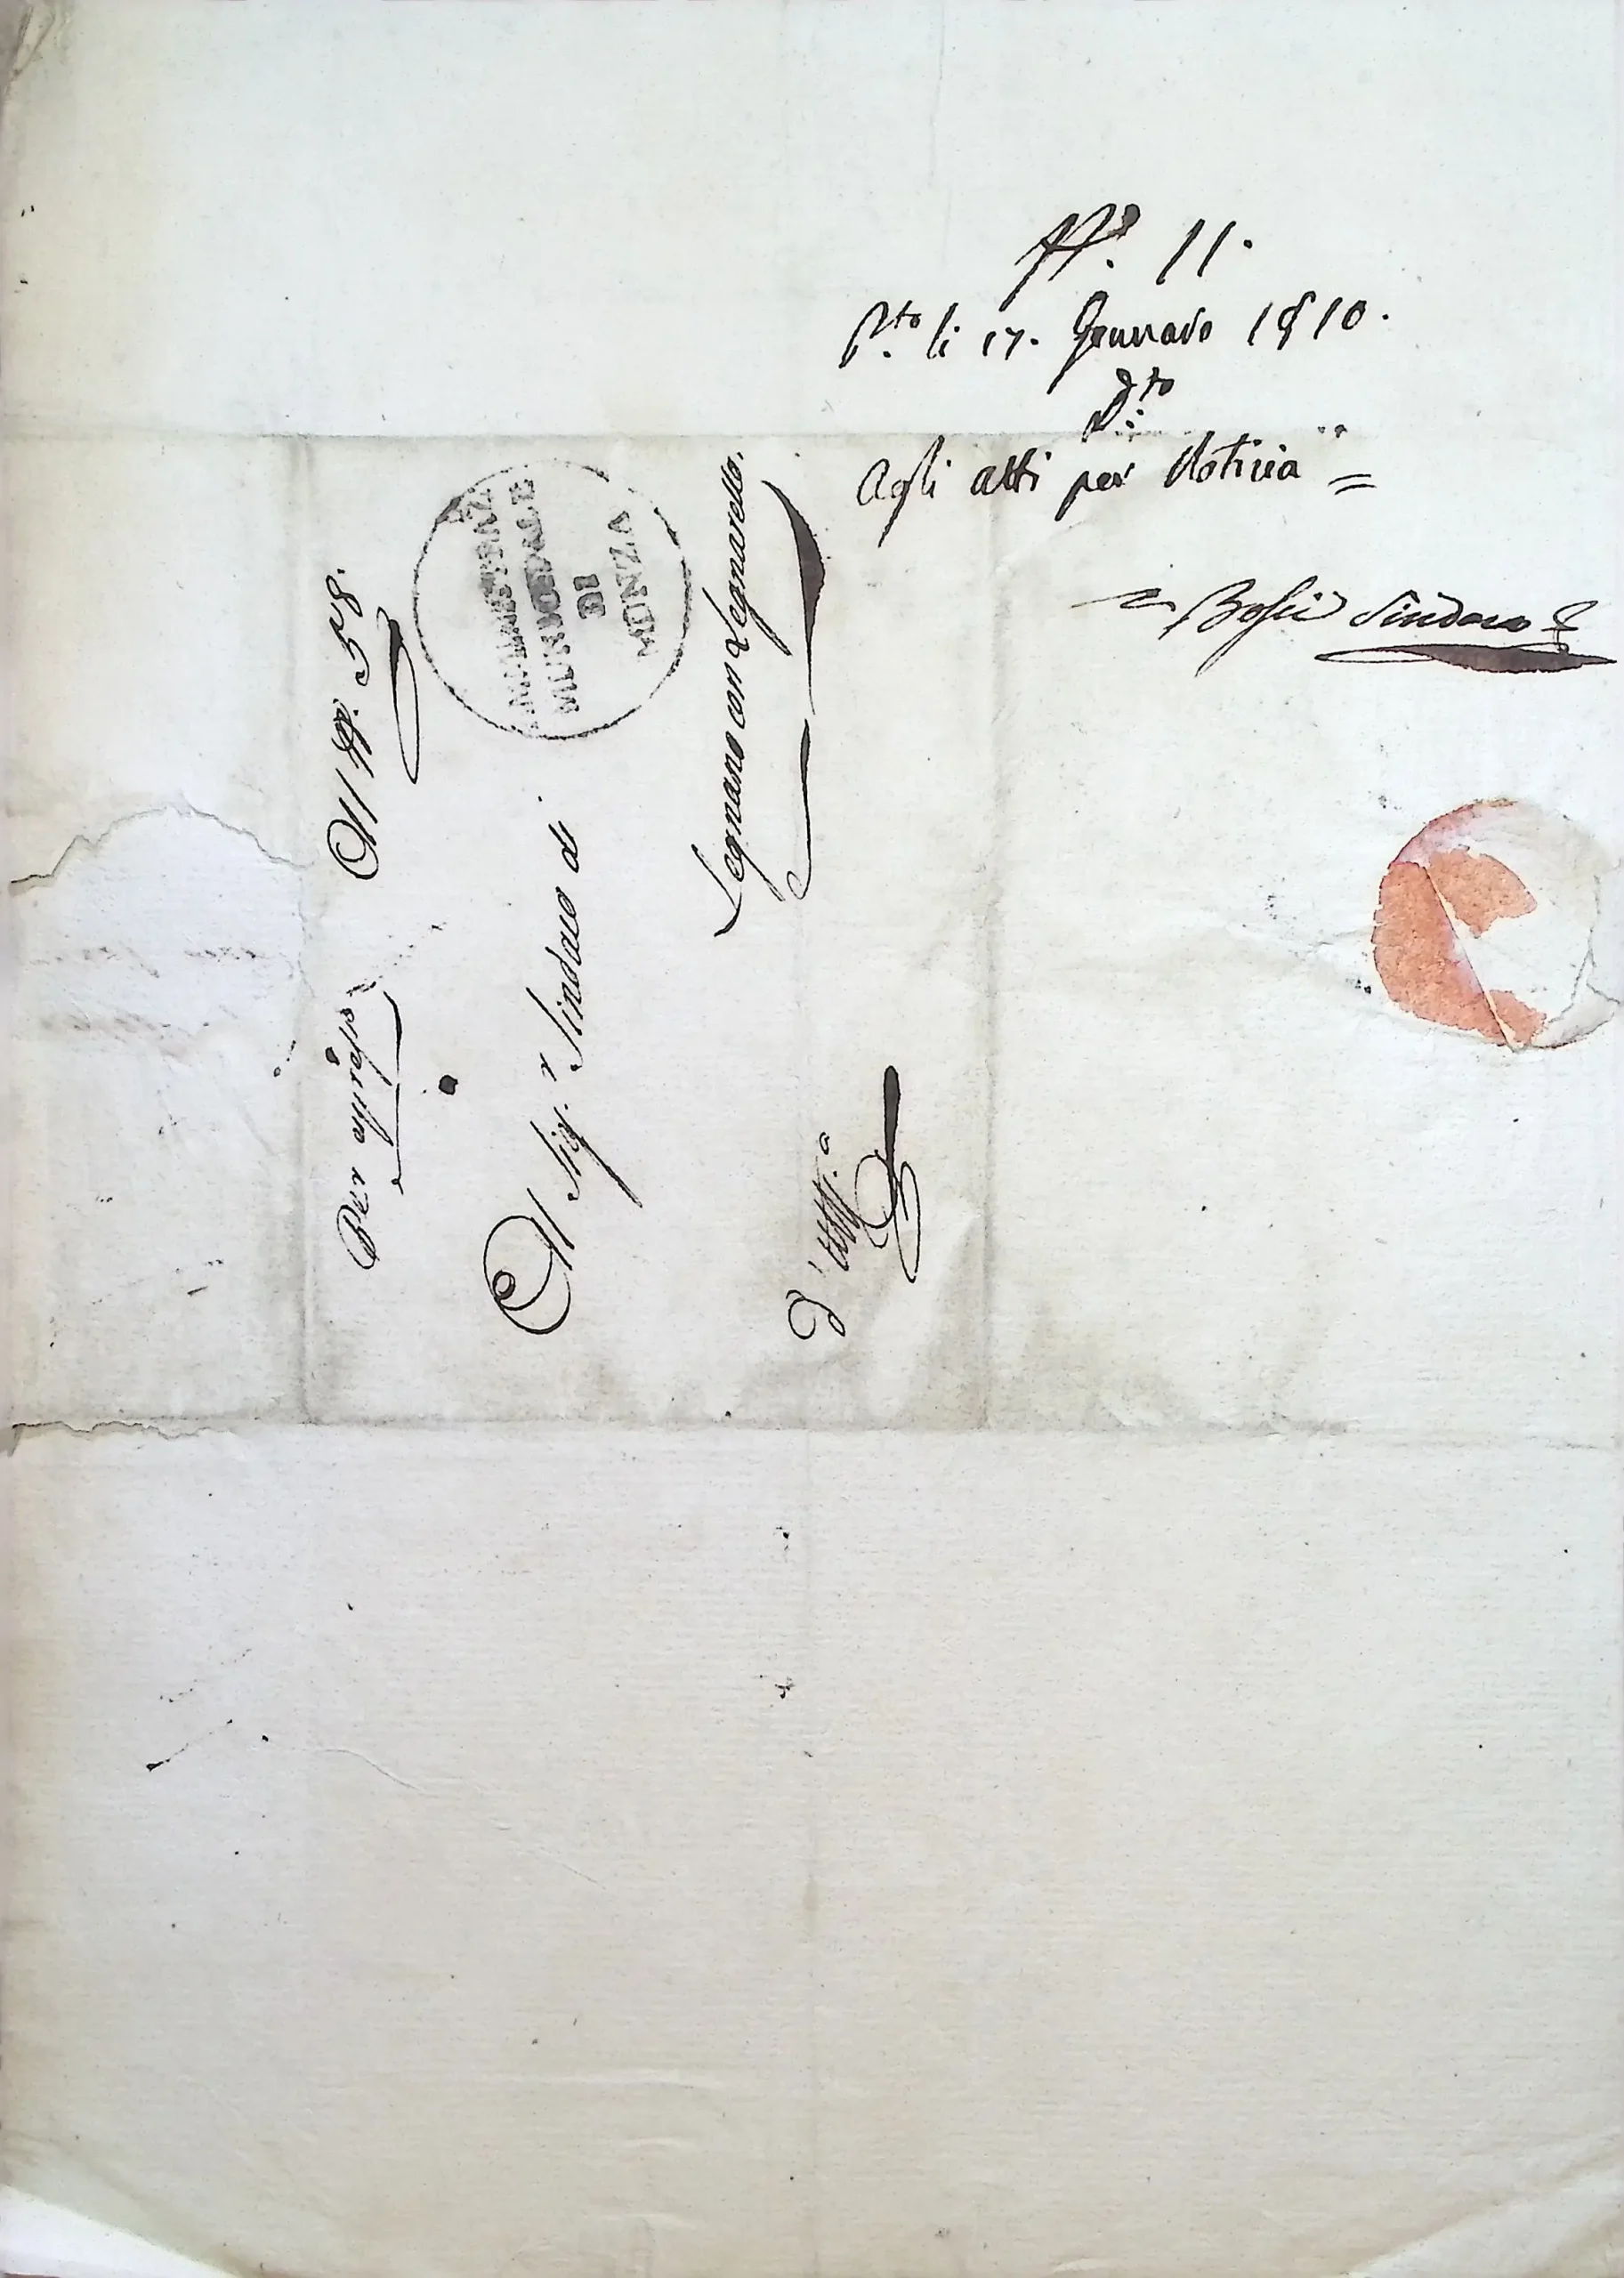 N.º 11.
P.to li 17. Gennaro 1810.
D.to
Agli atti per Notizia =
= Bossi Sindaco
Per espresso
Al N. 58.
AMMINISTRAZ.
MUNICIPALE
DI
MONZA
Al Sig.r Sindaco di
Legnano con Legnarello.
D'Uff.o